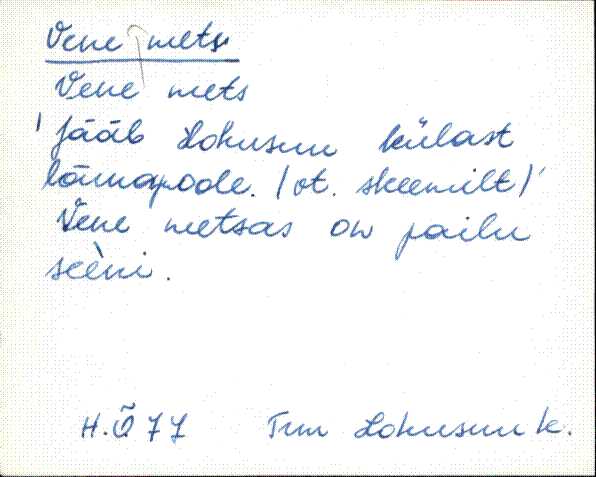 Vene mets
Vene mets
' Jääb Lohusuu külast
lõunapoole. (vt. skeemilt)'
Vene metsas on pailu
seèni.
H.Õ 77 Trm Lohusuu k.